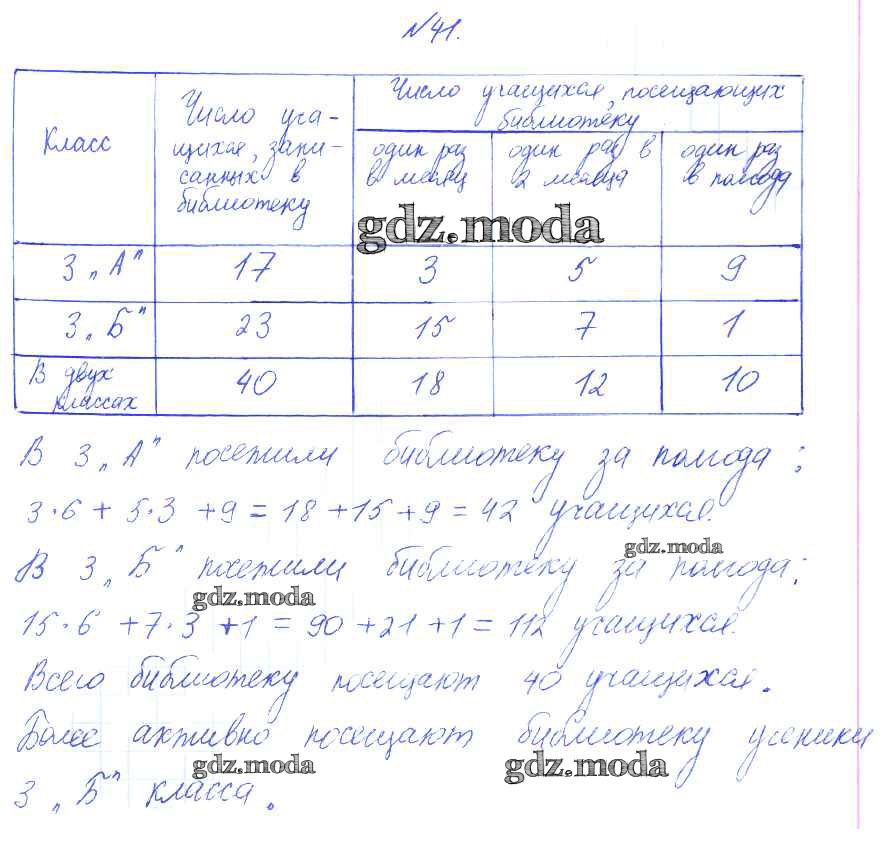 №41.
Класс
Число уча-
щихся, запи-
санных в
библиотеку
Число учащихся, посещающих
библиотеку
один раз
в месяц
один раз в
2 месяца
один раз
в полгода
gdz.moda
3 „А" 17 3 5 9
3 „Б" 23 15 7 1
В двух
классах 40 18 12 10
В 3 „А" посетили библиотеку за полгода:
3·6 + 5·3 + 9 = 18 + 15 + 9 = 42 учащихся.
gdz.moda
В 3 „Б" посетили библиотеку за полгода:
gdz.moda
15·6 + 7·3 + 1 = 90 + 21 + 1 = 112 учащихся.
Всего библиотеку посещают 40 учащихся.
Более активно посещают библиотеку ученики
gdz.moda gdz.moda
3 „Б" класса.